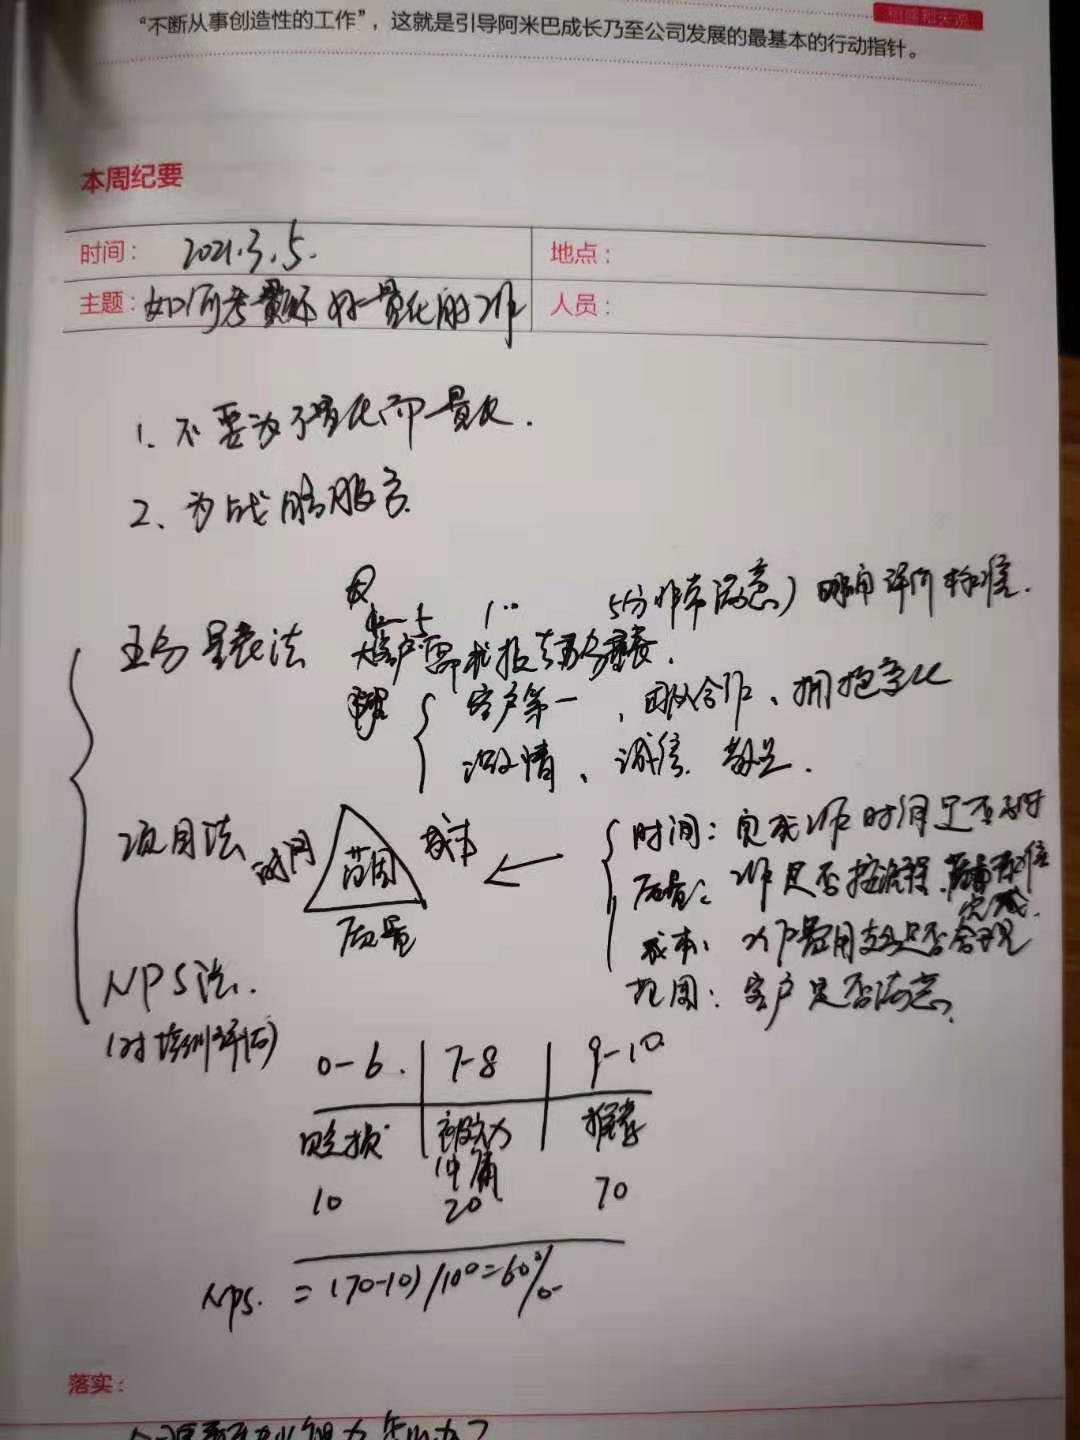 稻盛和夫说
“不断从事创造性的工作”，这就是引导阿米巴成长乃至公司发展的最基本的行动指针。
本周纪要
时间： 2021.3.5. 地点：
主题：如何考量不好量化的工作 人员：
1、不要为了量化而量化.
2、为战略服务.
1—5 1.. 5分非常满意） 明确评价标准.
五分量表法 大客户
客户第一、团队合作、拥抱变化
激情、诚信、敬业.
项目法 时间 范围 成本 ← 时间：完成工作时间是否及时
质量：工作是否按流程、标准
质量 完成.
成本：费用支出是否合规
范围：客户是否满意.
NPS法.
(对培训评估)
0-6. 7-8 9-10
贬损 被动 推荐
中庸
10 20 70
NPS. =(70-10)/100=60%
落实：